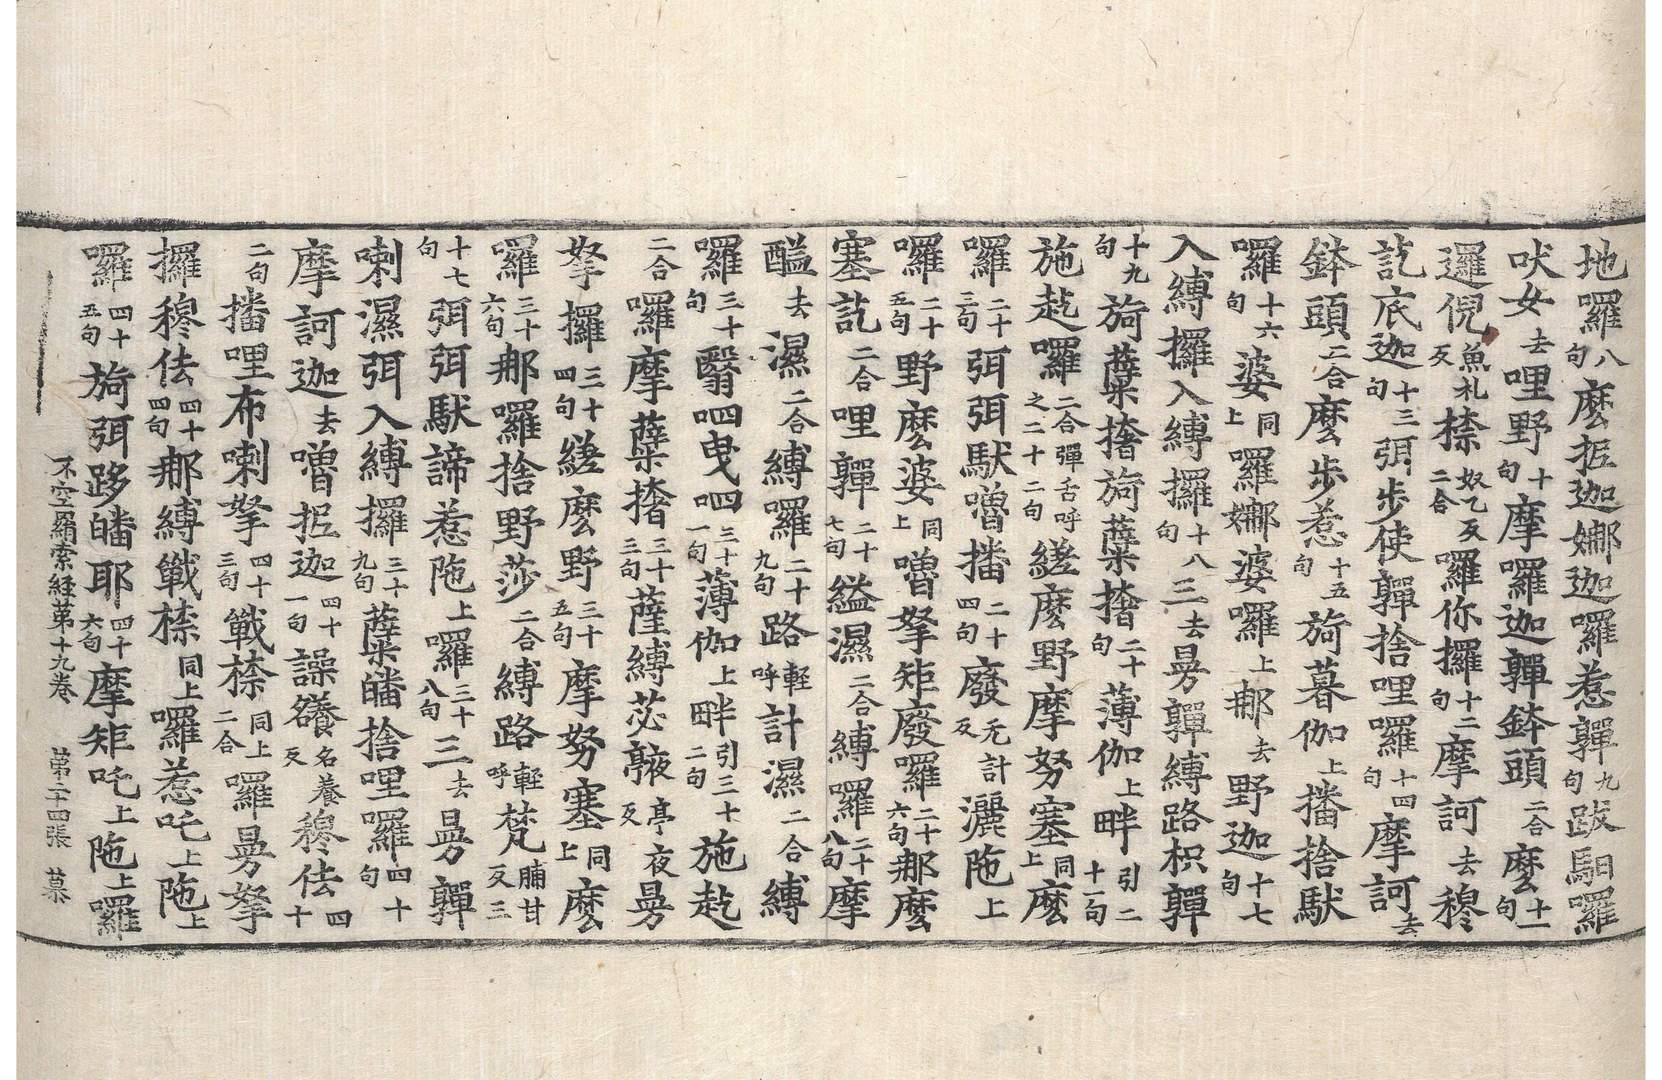 地囉八句麼抳迦娜迦囉惹嚲九句跋馹囉
吠女去哩野十句摩囉迦嚲鉢頭二合麼十一句
邏倪魚札反㮈奴乙反二合囉你㘕十二句摩訶去穆
訖底迦十三句弭步使嚲捨哩囉十四句摩訶去
鉢頭二合麼步惹十五句旖暮伽上播捨馱
囉十六句婆同上囉娜婆囉上郍去野迦十七句
入縛攞入縛攞十八句三去曼嚲縛路枳嚲
十九句旖㩲㩲旖二十句薄伽上畔引二十一句
施訖囉二合彈舌呼之二十二句縒麼野摩努塞同上麼
囉二十三句弭弭馱噜播二十四句廢无計反灑陁上
囉二十五句野麼婆同上噜拏矩廢囉二十六句郍麼
塞訖二合哩嚲二十七句縊濕二合縛囉二十八句摩
醯去濕二合縛囉二十九句路輕呼計濕二合縛
囉三十句翳呬曳呬三十一句薄伽上畔引三十二句施訖
二合囉摩三十三句薩縛苾亭夜反曼
拏攞三十四句縒麼野三十五句摩努塞同上麼
囉三十六句郍囉捨野莎二合縛路輕呼梵脯甘反三
十七句弭弭馱諦惹陁上囉三十八句三去曼嚲
喇濕弭入縛攞三十九句皤捨哩囉四十句
摩訶迦去噜抳迦四十一句譟名養反穆佉四十
二句播哩布喇拏四十三句戰㮈同上二合囉曼拏
攞穆佉四十四句郍縛戰㮈同上囉惹吒上陁上
囉四十五句旖弭跢皤耶四十六句摩矩吒上陁上囉
不空羂索経第十九巻　第二十四張　慕